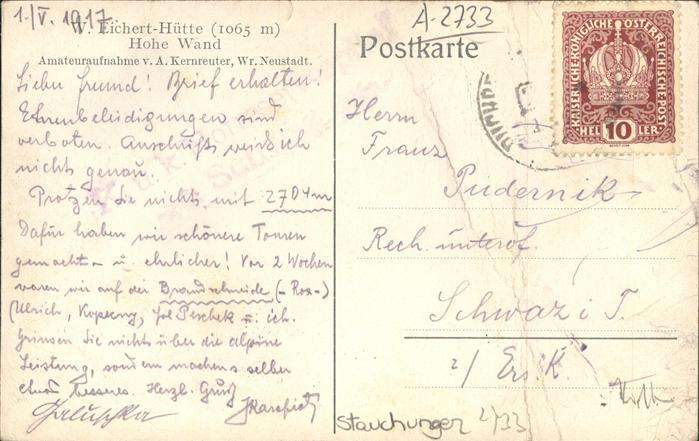 1./V. 1917.
W. Eichert-Hütte (1065 m)
Hohe Wand
Amateuraufnahme v. A. Kernreuter, Wr. Neustadt.
Lieber Freund! Brief erhalten!
Ehrenbeleidigungen sind
verboten. Anschrift weiß ich
nicht genau.
Protzen Sie nichts, mit 2704m
Dafür haben wir schönere Touren
gemacht – u. ehrlicher! Vor 2 Wochen
waren wir auf der Brandschneide (– Rax –)
(Ulrich, Kopezny, Peschek u. ich.
Grinsen Sie nicht über die alpine
Leistung, sondern machens selber
etwas besseres. Herzl. Gruß
Galuschka
A-2733
Postkarte
KAISERLICHE KÖNIGLICHE ÖSTERREICHISCHE POST
HELLER 10
Herrn
Franz
Pudernik
Rech. unterof.
Schwaz i T.
2/ Ers. K.
Stauchungen 2/33